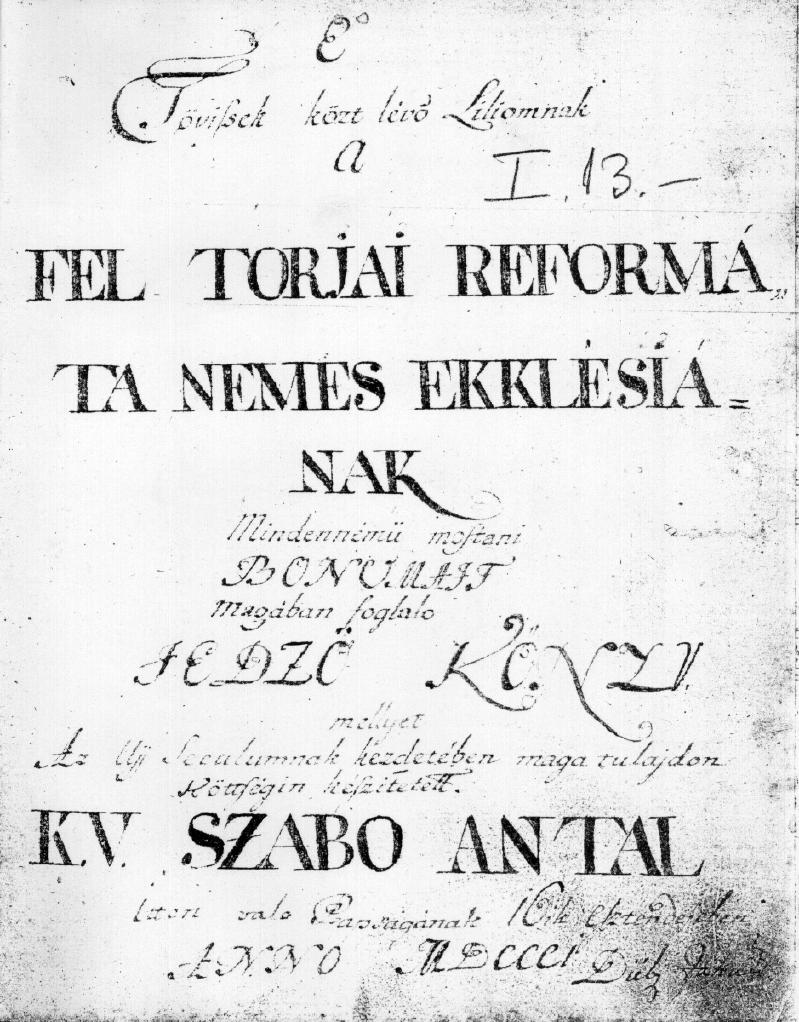 E°
Tövissek közt lévő Liliomnak
A
I. 13.-
FEL TORJAI REFORMÁ„
TA NEMES EKKLÉSIÁ=
NAK
Mindennémü mostani
BONUMAIT
Magában foglalo
JEDZŐ KÖNYV.
mellyet
Az Ujj Seculumnak kezdetében maga tulajdon
Költségin készitetett.
K.V. SZABO ANTAL
Itten valo Papságának 10ik Esztendejében
ANNO MDCCCI